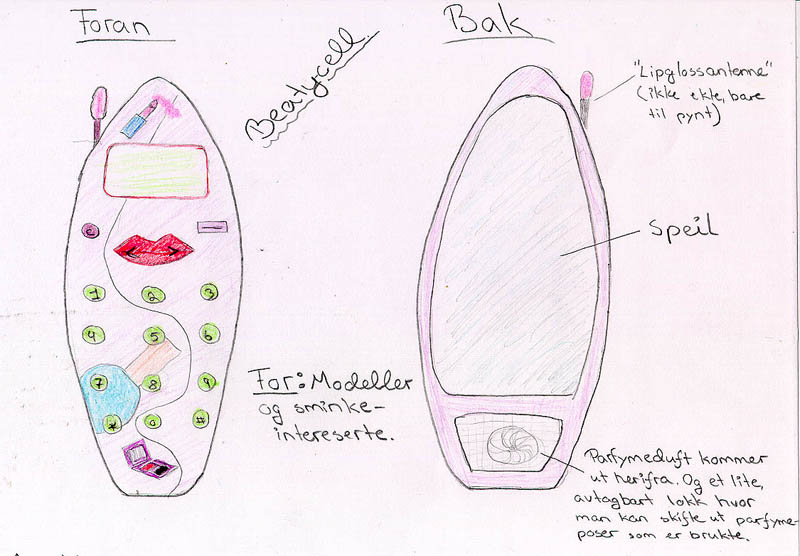 Foran
Bak
Beatycell
"Lipglossantenne"
(ikke ekte, bare
til pynt)
c
1 2 3
4 5 6
7 8 9
* 0 #
Speil
For: Modeller
og sminke-
intereserte.
Parfymeduft kommer
ut herifra. Og et lite,
avtagbart lokk hvor
man kan skifte ut parfyme-
poser som er brukte.